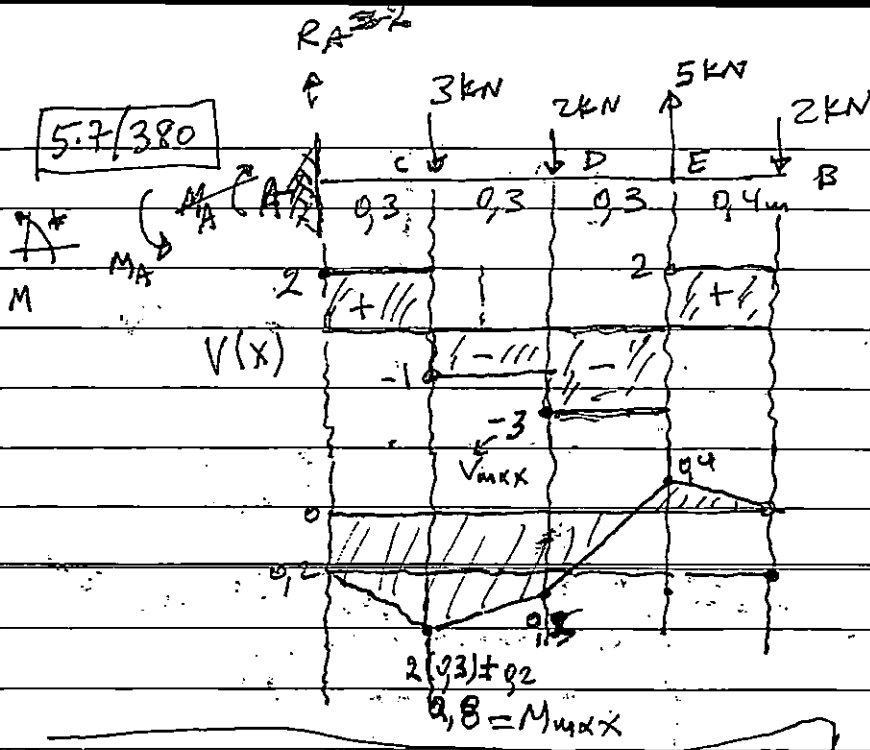 RA = 2
3kN 2kN 5kN 2kN
5.7/380
C D E B
MA A 0,3 0,3 0,3 0,4m
MA
M
2 + 2 +
V(x)
-1 - -
-3
Vmax
0,4
0
0,2
0,
2(0,3)+0,2
0,8 = Mmax